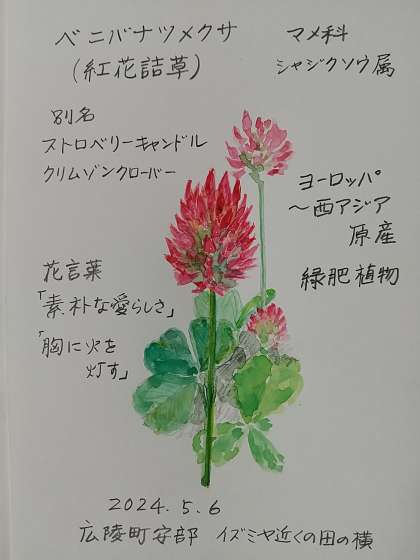 ベニバナツメクサ
(紅花詰草)
マメ科
シャジクソウ属
別名
ストロベリーキャンドル
クリムゾンクローバー
ヨーロッパ
～西アジア
原産
緑肥植物
花言葉
「素朴な愛らしさ」
「胸に火を
灯す」
2024.5.6
広陵町安部 イズミヤ近くの田の横